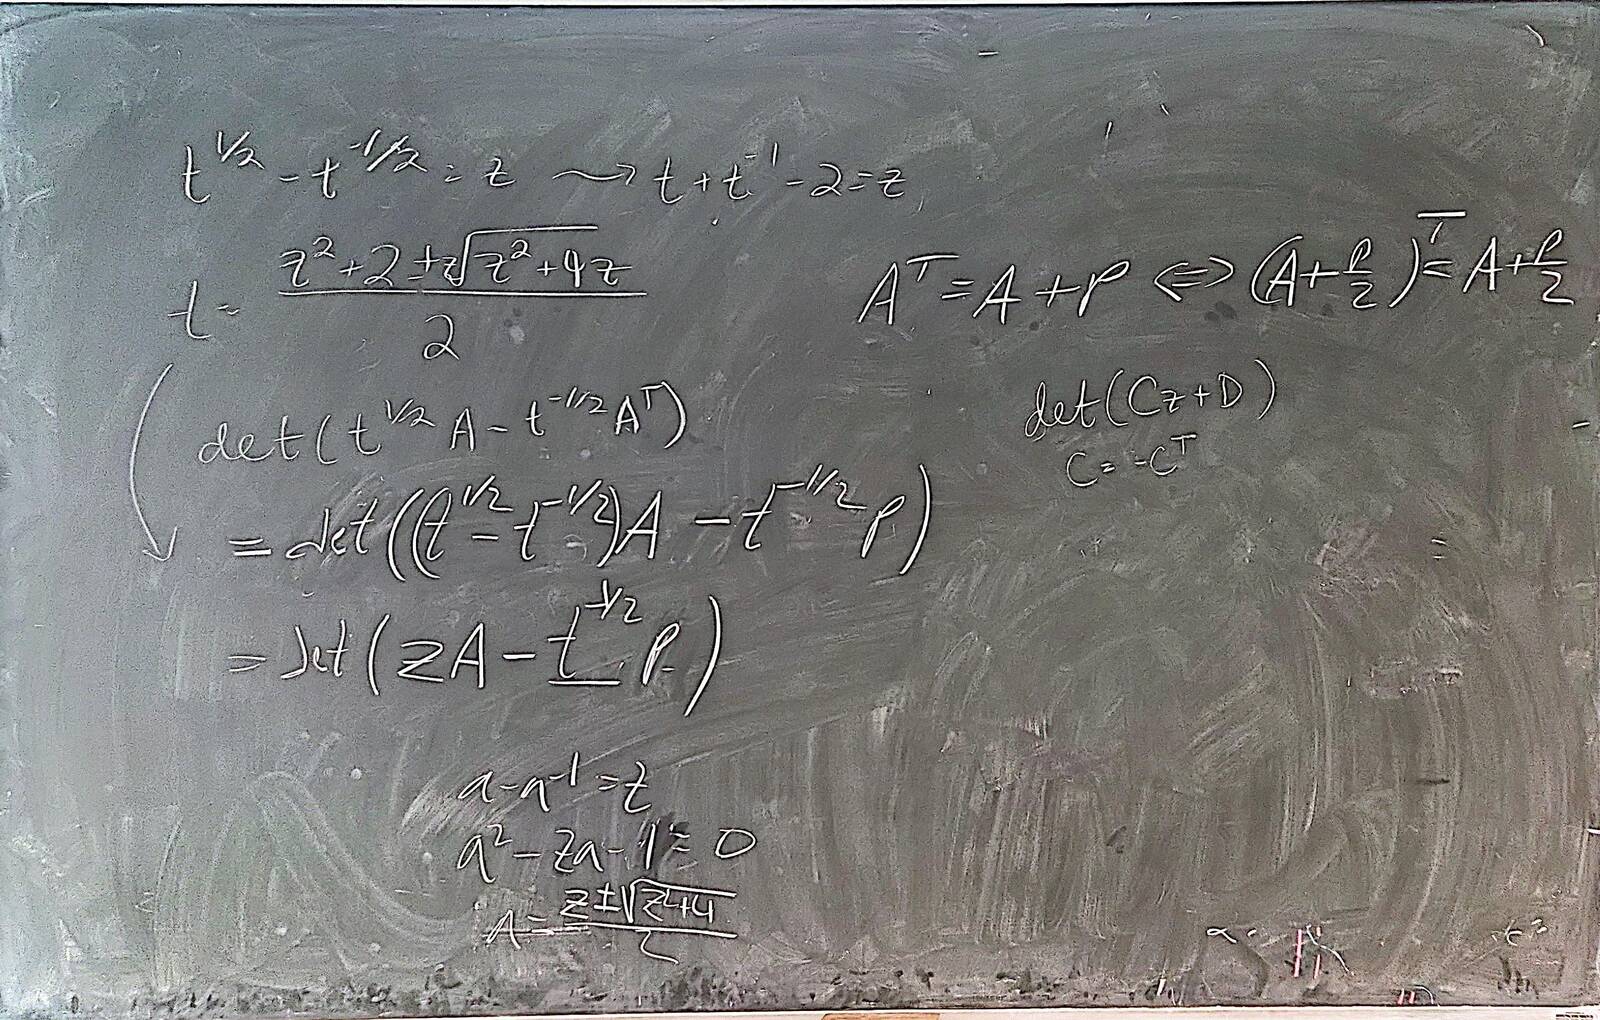 t^{1/2} - t^{-1/2} = z ⇝ t + t^{-1} - 2 = z
t = \frac{z^2 + 2 ± z\sqrt{z^2 + 4z}}{2}
det(t^{1/2} A - t^{-1/2} A^T)
= det((t^{1/2} - t^{-1/2}) A - t^{-1/2} P)
= det(zA - t^{-1/2} P)
a - a^{-1} = z
a^2 - za - 1 = 0
a = \frac{z ± \sqrt{z^2 + 4}}{2}
A^T = A + P ⇔ (A + \frac{P}{2})^T = A + \frac{P}{2}
det(Cz + D)
C = -C^T